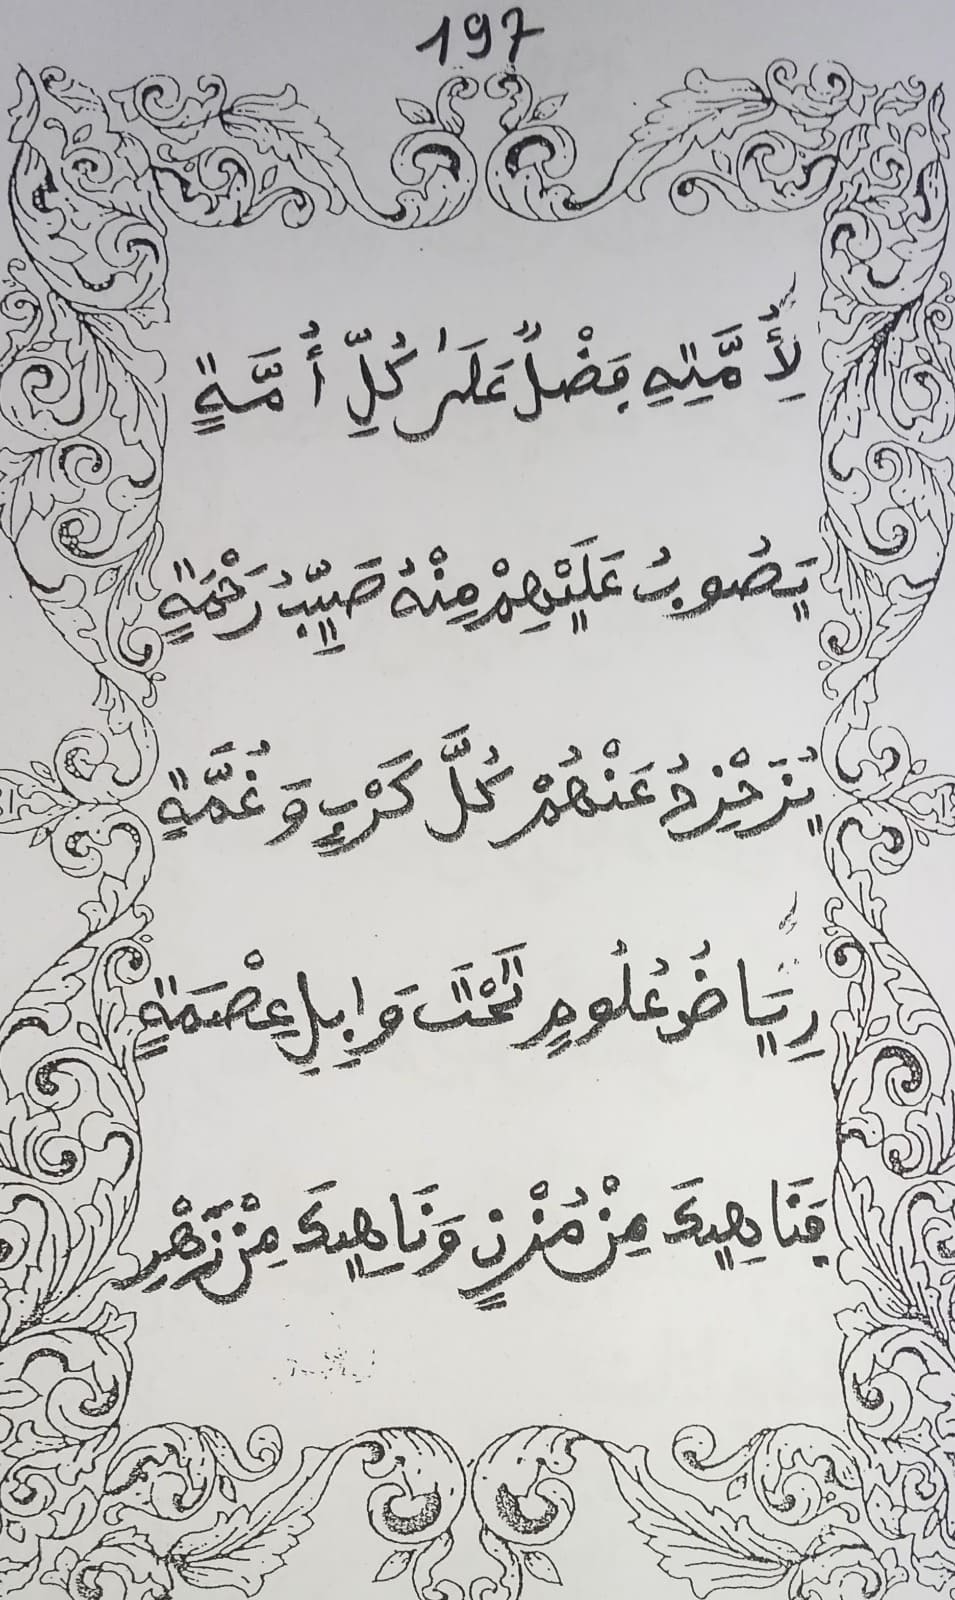 197
لِأُمَّتِهِ فَضْلٌ عَلَىٰ كُلِّ أُمَّةٍ
يَصُوبُ عَلَيْهِمْ مِنْهُ صَيِّبُ رَحْمَةٍ
يُزَحْزِحُ عَنْهُمْ كُلَّ كَرْبٍ وَغُمَّةٍ
رِيَاضُ عُلُومٍ تَحْتَ وَابِلِ عِصْمَةٍ
فَنَاهِيكَ مِنْ مُزْنٍ وَنَاهِيكَ مِنْ زَهْرِ